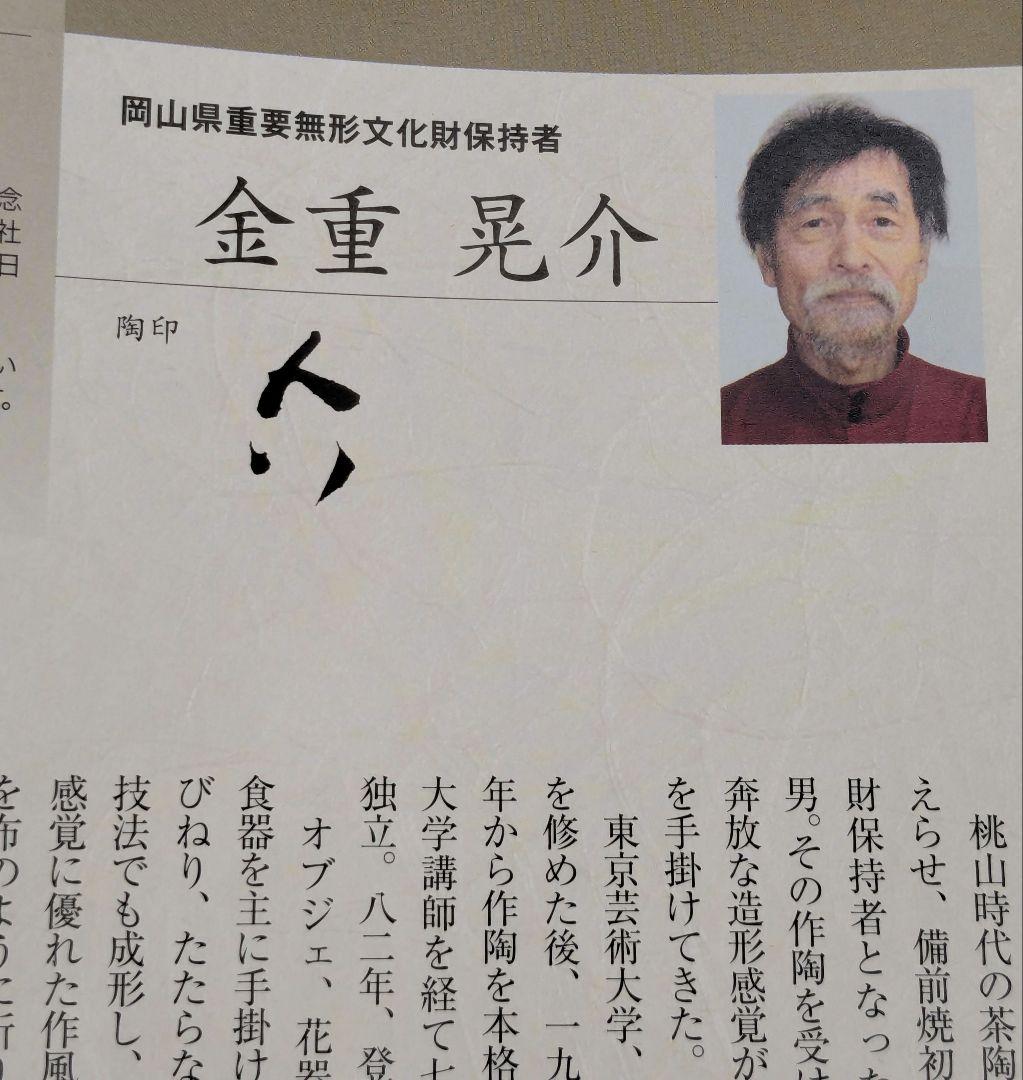 岡山県重要無形文化財保持者
金重 晃介
陶印
桃山時代の茶陶
えらせ、備前焼初
財保持者となった
男。その作陶を受け
奔放な造形感覚が
を手掛けてきた。
東京芸術大学、
を修めた後、一九
年から作陶を本格
大学講師を経て七
独立。八二年、登
オブジェ、花器
食器を主に手掛け
びねり、たたらな
技法でも成形し、
感覚に優れた作風
を布のように折り
念
社
日
い
す。